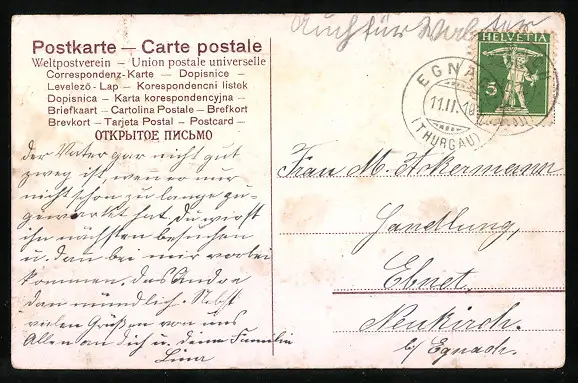 Auch für Walter
Postkarte — Carte postale
Weltpostverein — Union postale universelle
Correspondenz-Karte — Dopisnice —
Levelező-Lap — Korespondencni listek
Dopisnica — Karta korespondencyjna —
Briefkaart — Cartolina Postale — Brefkort
Brevkort — Tarjeta Postal — Postcard —
ОТКРЫТОЕ ПИСЬМО
HELVETIA
5
EGNACH
11.II.10
(THURGAU)
der Vater gar nicht gut
zweg ist, wenn er nur
nicht schon zu lange zu-
gewartet hat, Du wirst
ihn nächstens besuchen
u. dan bei mir vorbei
kommen. das Andre
dan mündlich. Nebst
vielen Grüßen von uns
Allen an dich u. deine Familie
Lina
Frau M. Ackermann
Handlung,
Ebnet.
Neukirch.
b/ Egnach.